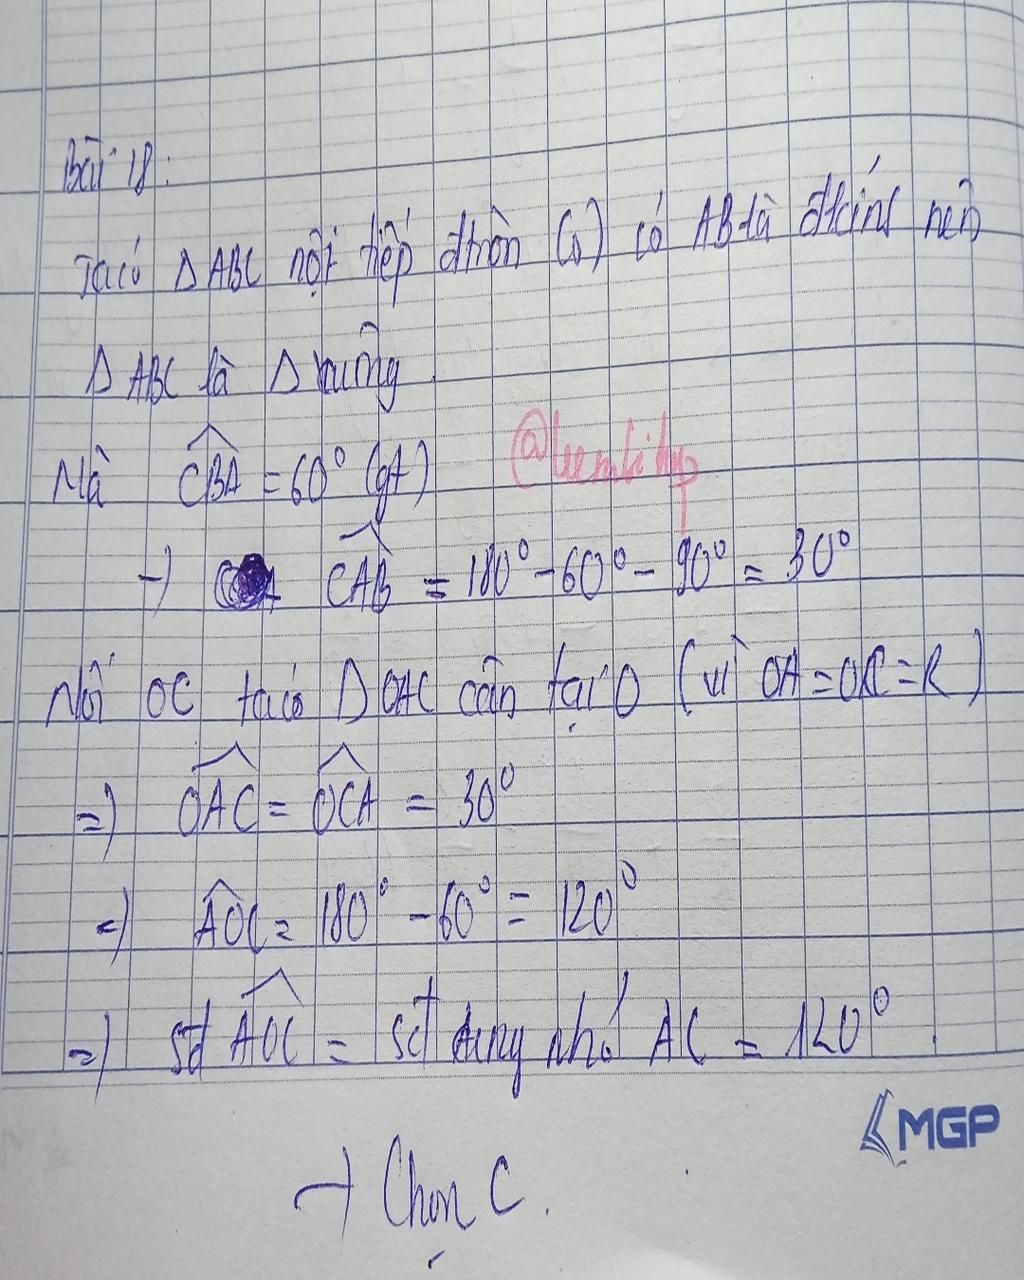 Bài 18:
Ta có Δ ABC nội tiếp đtròn (O) có AB là đkính nên
Δ ABC là Δ vuông
Mà CBA = 60° (gt)
→) CAB = 180° - 60° - 90° = 30°
Nối OC ta có Δ OAC cân tại O (vì OA = OC = R)
=) OAC = OCA = 30°
=) AOC = 180° - 60° = 120°
=) sđ AOC = sđ cung nhỏ AC = 120°.
MGP
→ Chọn C.